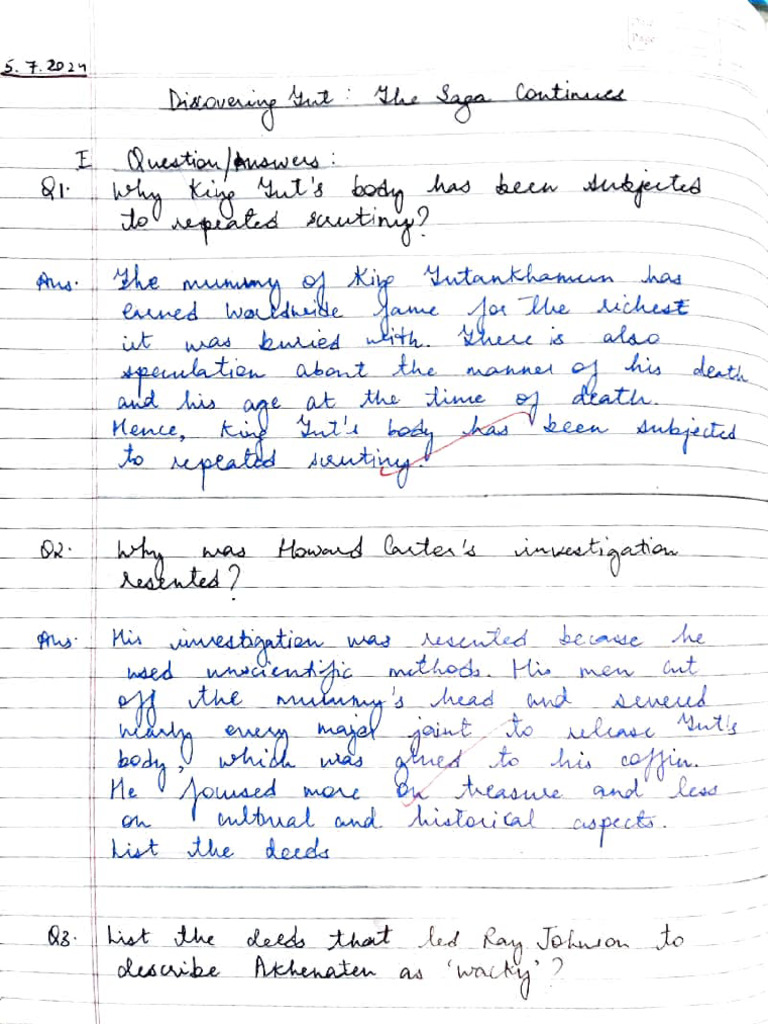 5.7.2024
Discovering Tut : The Saga Continues
I Question/Answers :
Q1. Why King Tut's body has been subjected
to repeated scrutiny?
Ans. The mummy of King Tutankhamun has
earned worldwide fame for the richest
it was buried with. There is also
speculation about the manner of his death
and his age at the time of death.
Hence, King Tut's body has been subjected
to repeated scrutiny.
Q2. Why was Howard Carter's investigation
resented?
Ans. His investigation was resented because he
used unscientific methods. His men cut
off the mummy's head and severed
nearly every major joint to release Tut's
body, which was glued to his coffin.
He focused more on treasure and less
on cultural and historical aspects.
List the deeds
Q3. List the deeds that led Ray Johnson to
describe Akhenaten as 'wacky'?